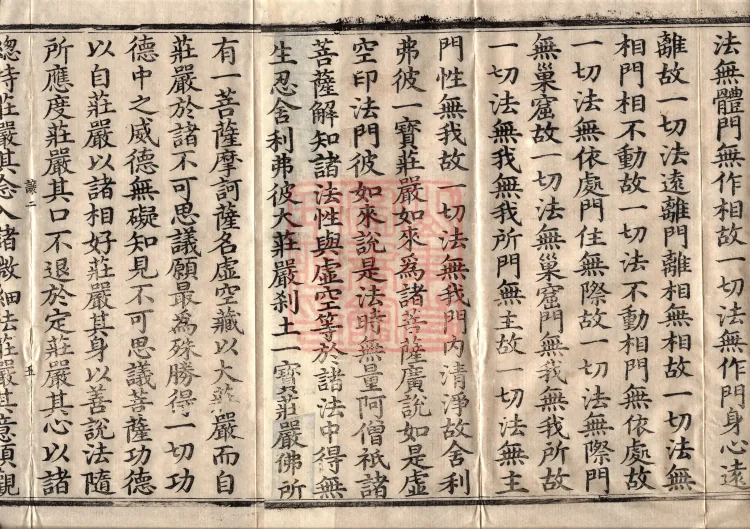 法無體門無作相故一切法無作門身心遠
離故一切法遠離門離相無相故一切法無
相門相不動故一切法不動相門無依處故
一切法無依處門住無際故一切法無際門
無巢窟故一切法無巢窟門無我無我所故
一切法無我無我所門無主故一切法無主
門性無我故一切法無我門內清淨故舍利
弗彼一寶莊嚴如來爲諸菩薩廣說如是虛
空印法門彼如來說是法時無量阿僧祇諸
菩薩解知諸法性與虛空等於諸法中得無
生忍舍利弗彼大莊嚴剎土一寶莊嚴佛所
有一菩薩摩訶薩名虛空藏以大莊嚴而自
莊嚴於諸不可思議願最爲殊勝得一切功
德中之威德無礙知見不可思議菩薩功德
以自莊嚴以諸相好莊嚴其身以善說法隨
所應度莊嚴其口不退於定莊嚴其心以諸
讓二 五
總持莊嚴其念入諸微細法莊嚴其意順觀